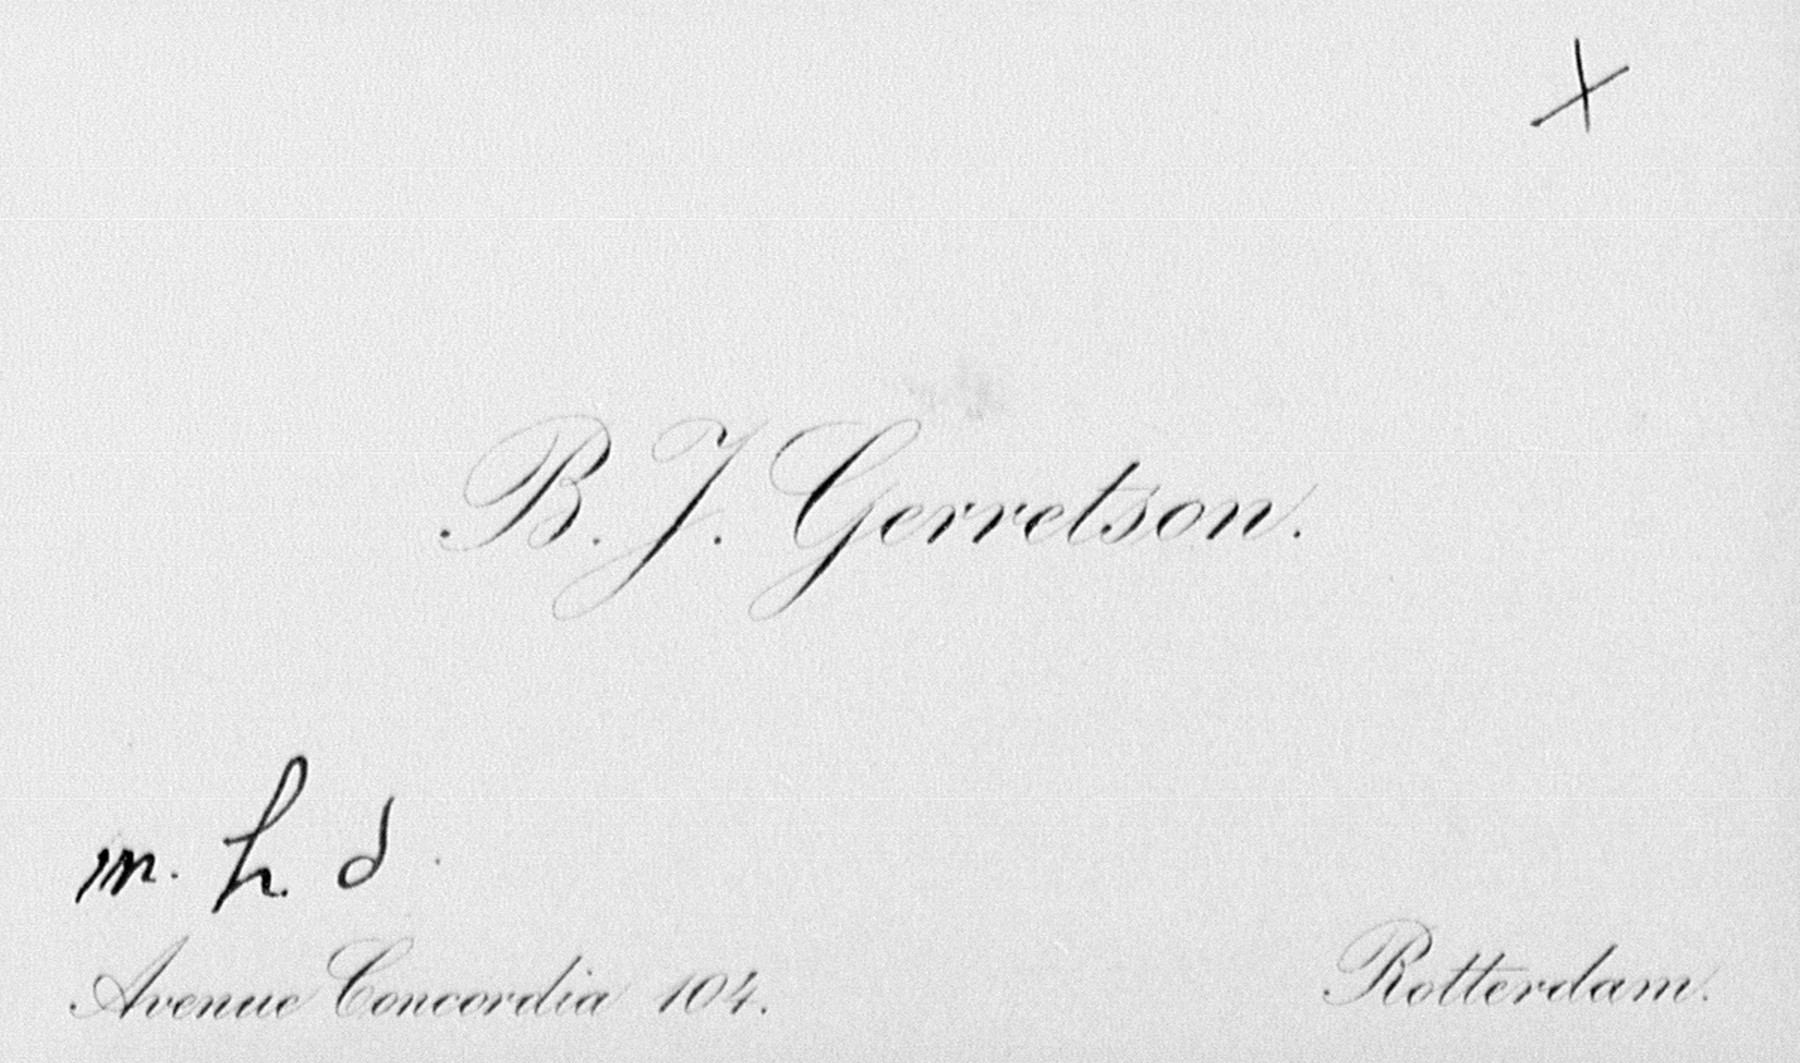 X
B. J. Gerretson.
m. h. d.
Avenue Concordia 104. Rotterdam.